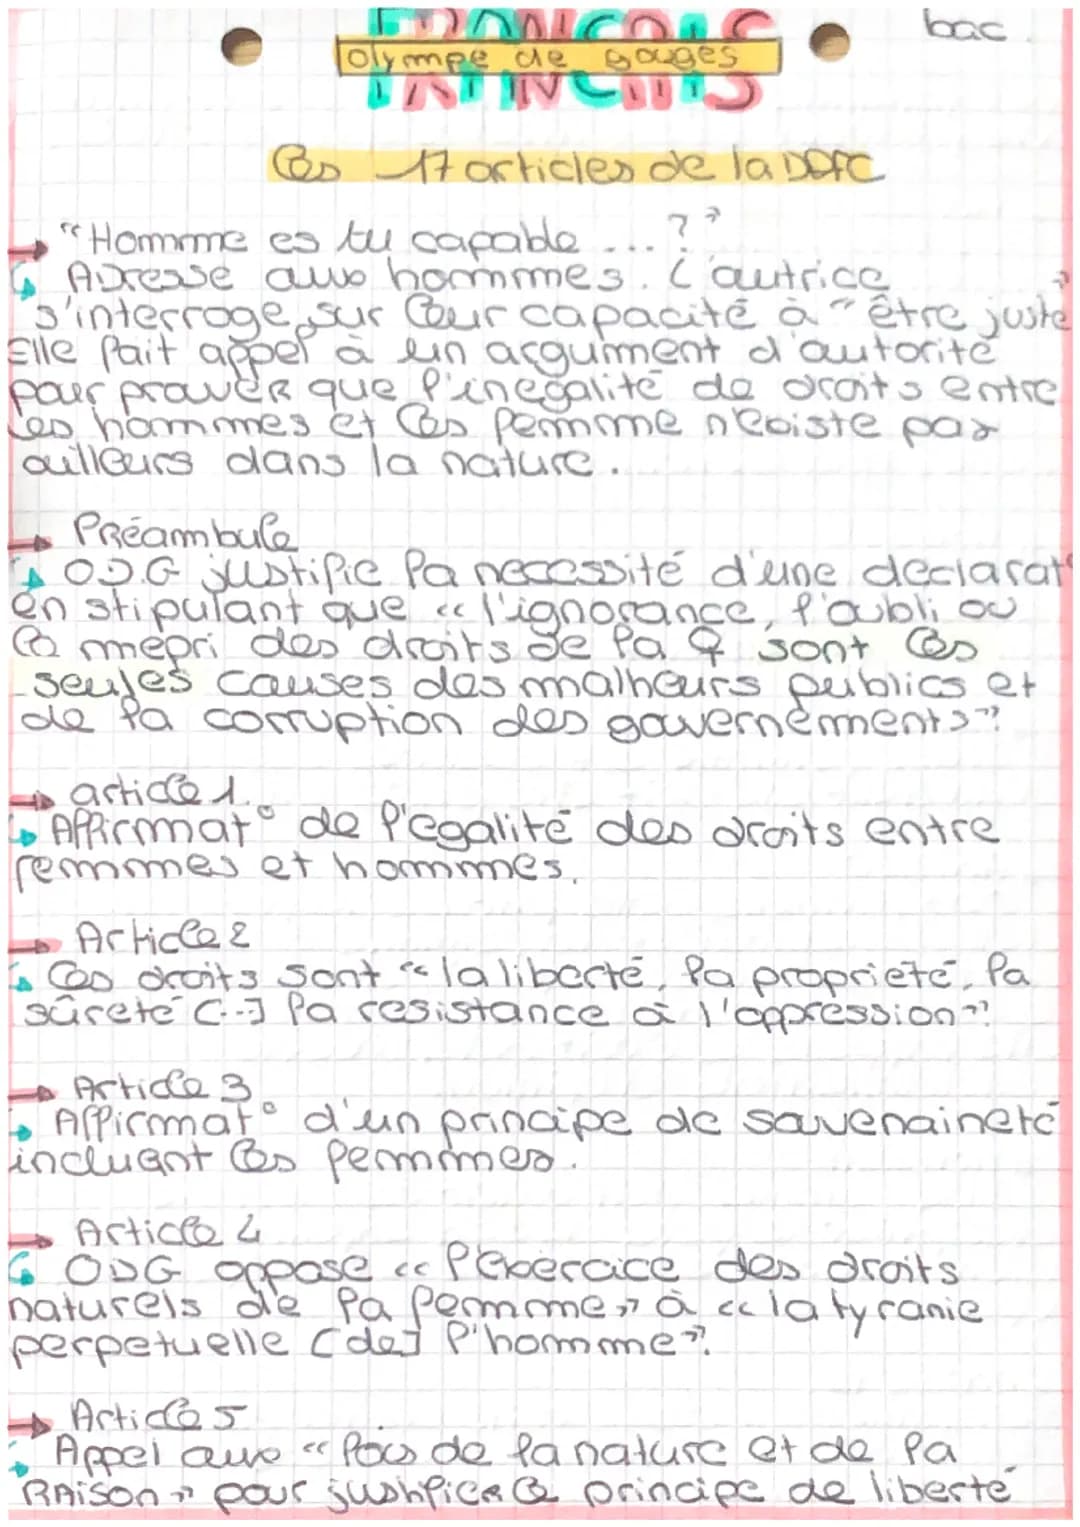 FRANCAIS
bac.
Olympe de gouges
FRANCAIS
les 17 articles de la DDFC
→ "Homme es tu capable ... ?"
↳ Adresse aux hommes. L'autrice
s'interroge sur leur capacité à "être juste"
Elle fait appel à un argument d'autorité
pour prouver que l'inegalité de droits entre
les hommes et les femme n'existe pas
ailleurs dans la nature.
→ Préambule
↳ O.D.G justifie la necessité d'une declarat°
en stipulant que « l'ignorance, l'oubli ou
le mepri des droits de la ♀ sont les
seules causes des malheurs publics et
de la corruption des gouvernements».
→ article 1.
↳ Affirmat° de l'egalité des droits entre
femmes et hommes.
→ Article 2
↳ les droits sont « la liberté, la propriété, la
sûreté [...] la resistance à l'oppression».
→ Article 3
↳ Affirmat° d'un principe de souvenaineté
incluant les femmes.
→ Article 4
↳ ODG oppose « l'exercice des droits
naturels de la femme » à « la tyranie
perpetuelle [de] l'homme».
→ Article 5
↳ Appel aux « lois de la nature et de la
Raison » pour justifier le principe de liberté